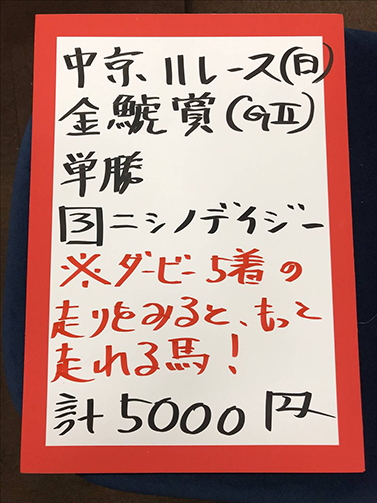 中京11レース(日)
金鯱賞(GII)
単勝
3ニシノデイジー
※ダービー5着の
走りをみると、もっと
走れる馬!
計5000円